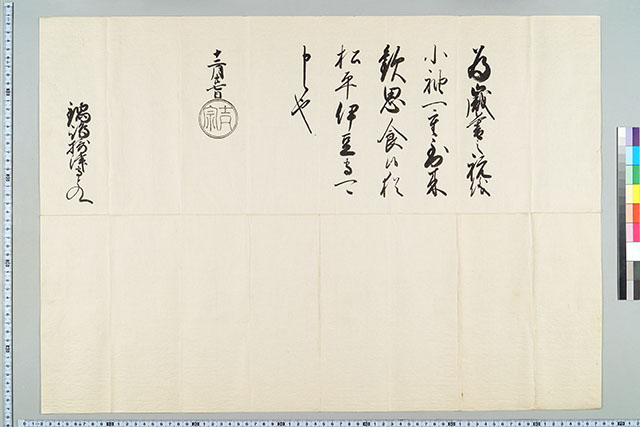 為歳暮之祝儀
小袖一重到来
歓思食候猶
松平伊豆守可
申候也
十二月
吉宗
鍋嶋摂津守とのへ